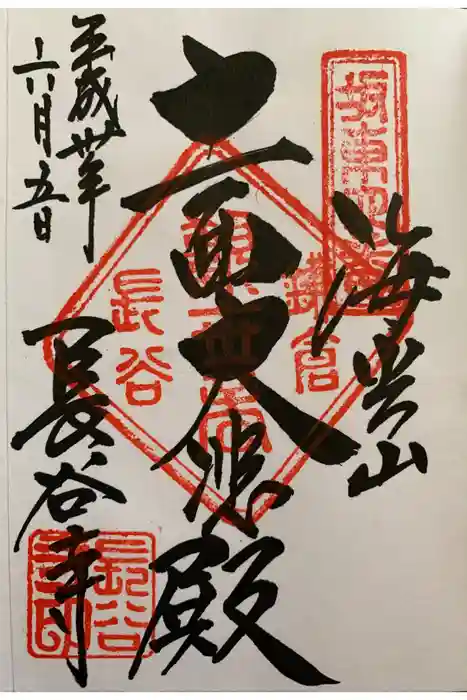 坂東四番
海光山
鎌倉
十一面大悲殿
長谷
平成卅年
六月五日
長谷寺
長谷寺印